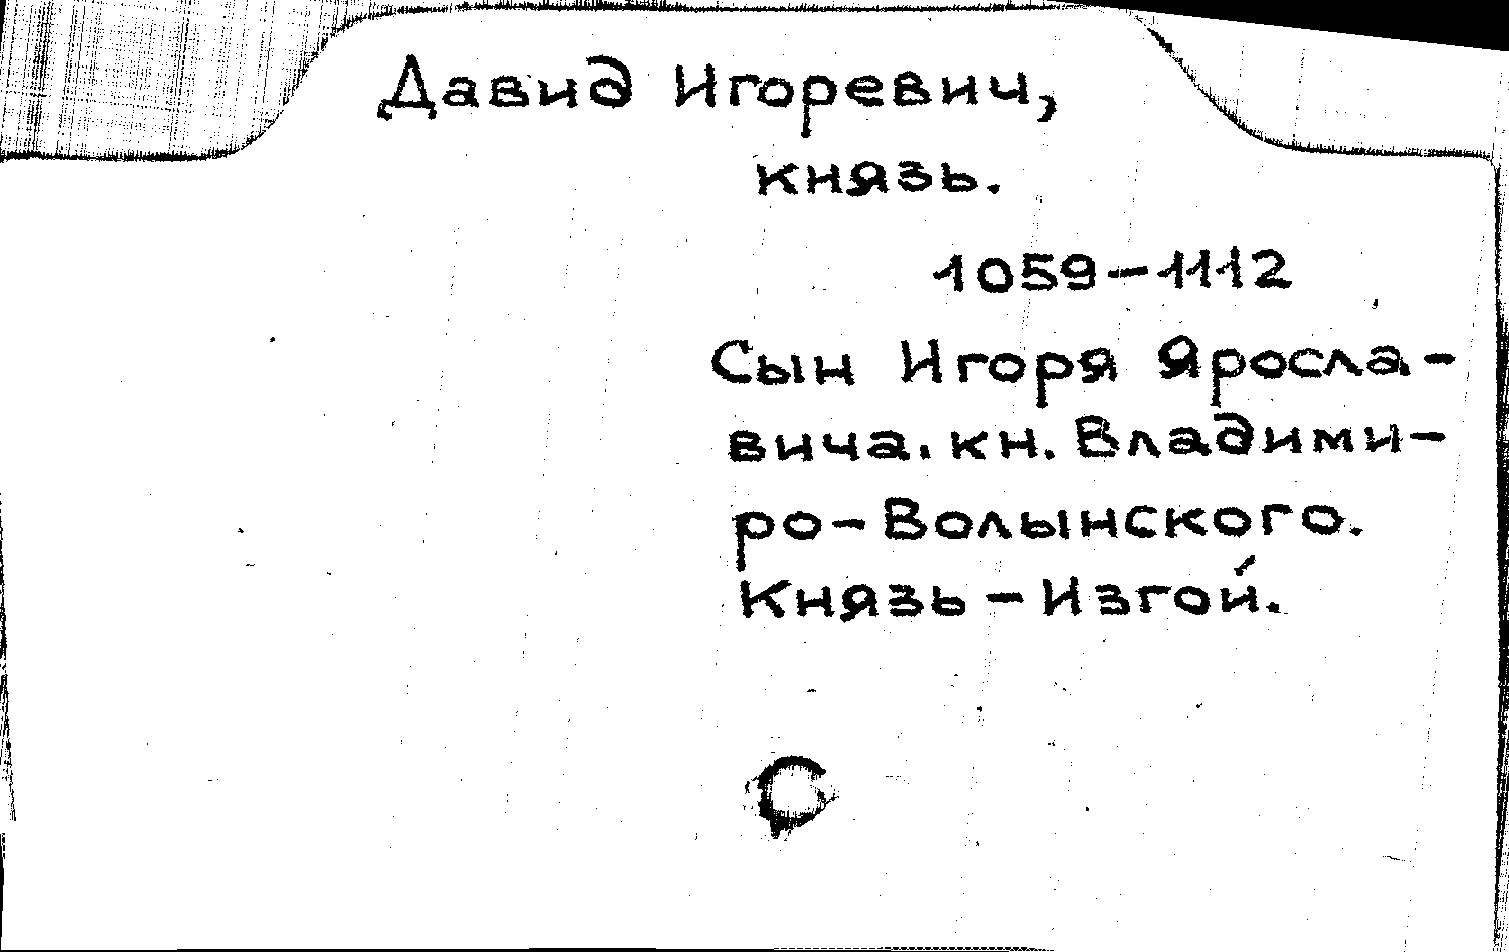 Давид Игоревич,
князь.
1059-1112
Сын Игоря Яросла-
вича. кн. Владими-
ро-Волынского.
Князь-Изгой.